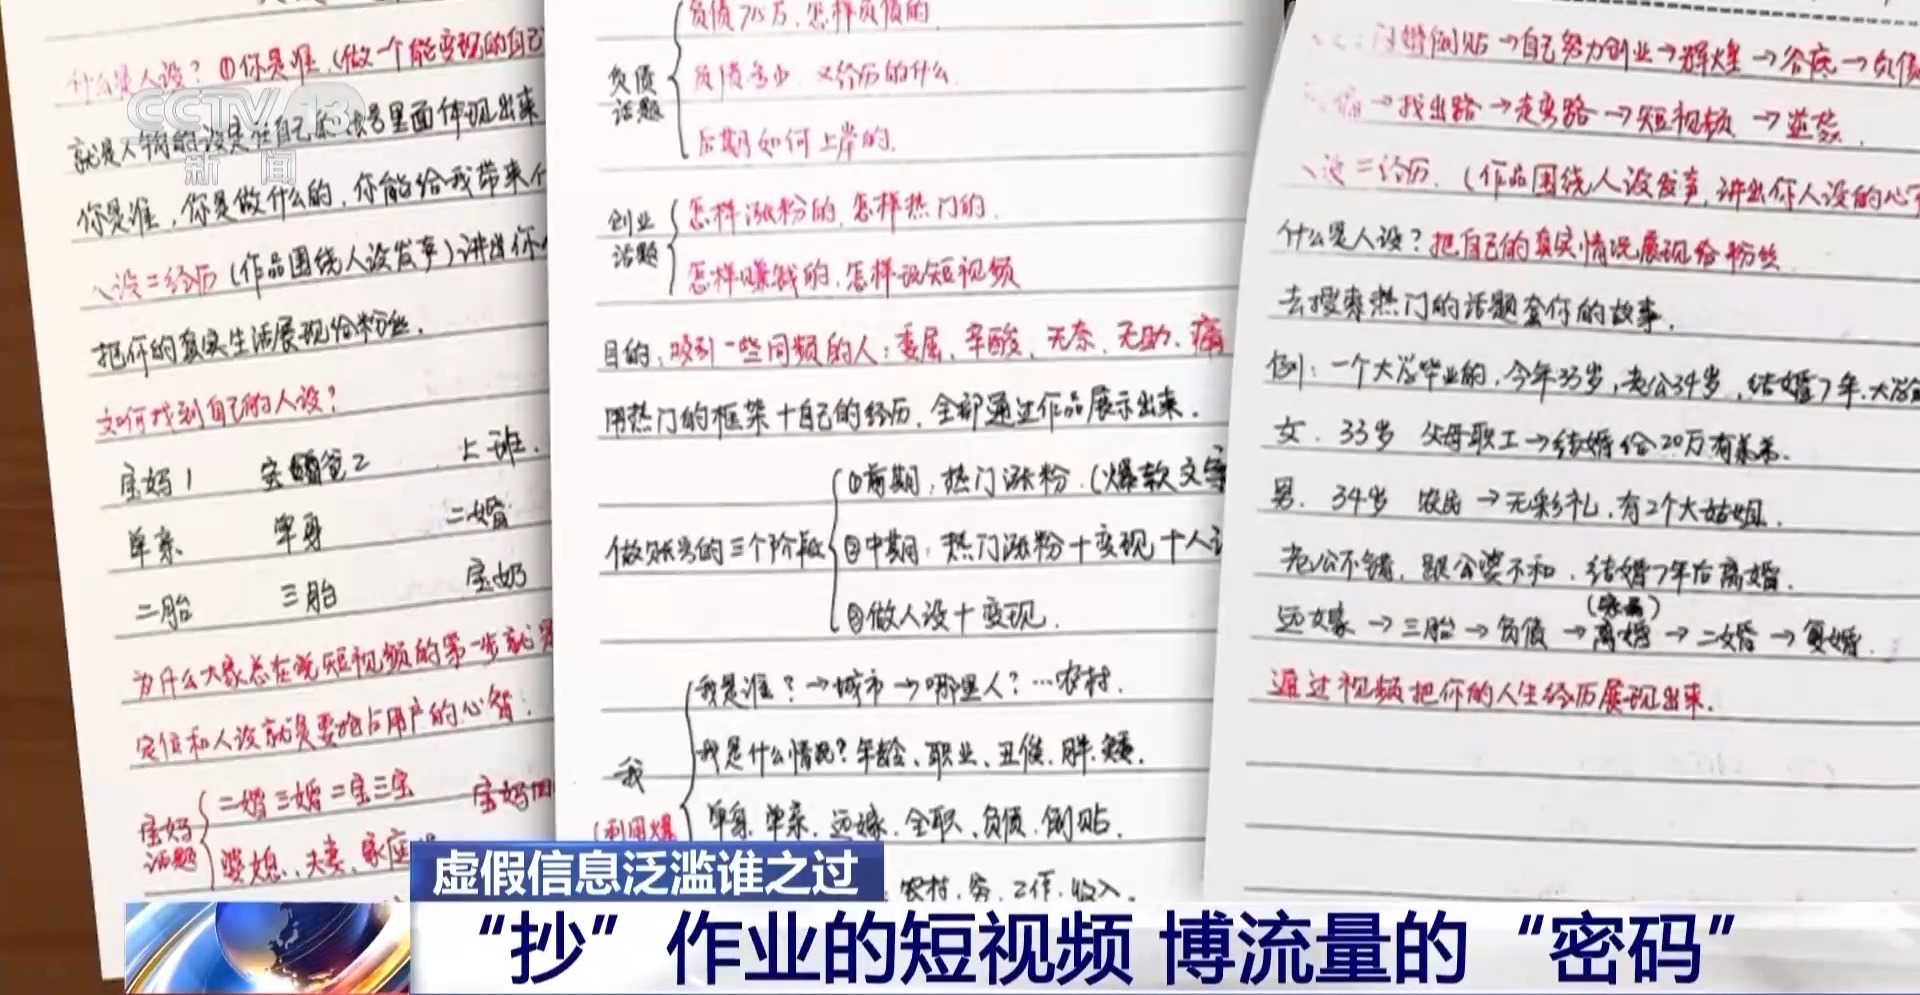 什么是人设？①你是谁.(做一个能变现的自己
就是人物的设定在自己的账号里面体现出来
你是谁，你是做什么的，你能给我带来
人设=经历(作品围绕人设发声)讲出你
把你的真实生活展现给粉丝.
如何找到自己的人设？
宝妈1 宝爸2 上班.
单亲 单身 二婚
二胎 三胎 宝奶
为什么大家总在说短视频的第一步就
定位和人设就是要抢占用户的心智:
宝妈话题
二婚三婚二宝三宝 宝妈
婆媳、夫妻、家庭
负债话题
负债715万.怎样负债的
负债多少 又经历的什么.
后期如何上岸的.
创业话题
怎样涨粉的.怎样热门的.
怎样赚钱的.怎样说短视频
目的:吸引一些同频的人:委屈、辛酸、无奈、无助、痛
用热门的框架+自己的经历.全部通过作品展示出来.
做账号的三个阶段
①前期:热门涨粉.(爆款文案
②中期:热门涨粉+变现+人设
③做人设+变现.
我
(利用爆
我是谁？→城市→哪里人？…农村.
我是什么情况？年龄、职业、丑俊、胖、矮.
单身.单亲.远嫁.全职、负债.倒贴.
农村.务.工作.收入.
闪婚倒贴→自己努力创业→辉煌→谷底→负债
→找出路→走弯路→短视频→逆袭.
人设=经历.(作品围绕人设发声.讲出你人设的心
什么是人设？把自己的真实情况展现给粉丝
去搜索热门的话题套你的故事.
例:一个大学毕业的.今年33岁,老公34岁,结婚7年.大学
女.33岁 父母职工→结婚给20万有弟弟.
男.34岁 农民→无彩礼.有2个大姑姐.
老公不错.跟公婆不和.结婚7年后离婚.
远嫁→三胎→负债→离婚→二婚→复婚.
通过视频把你的人生经历展现出来.
CCTV 13
新闻
虚假信息泛滥谁之过
“抄”作业的短视频 博流量的“密码”